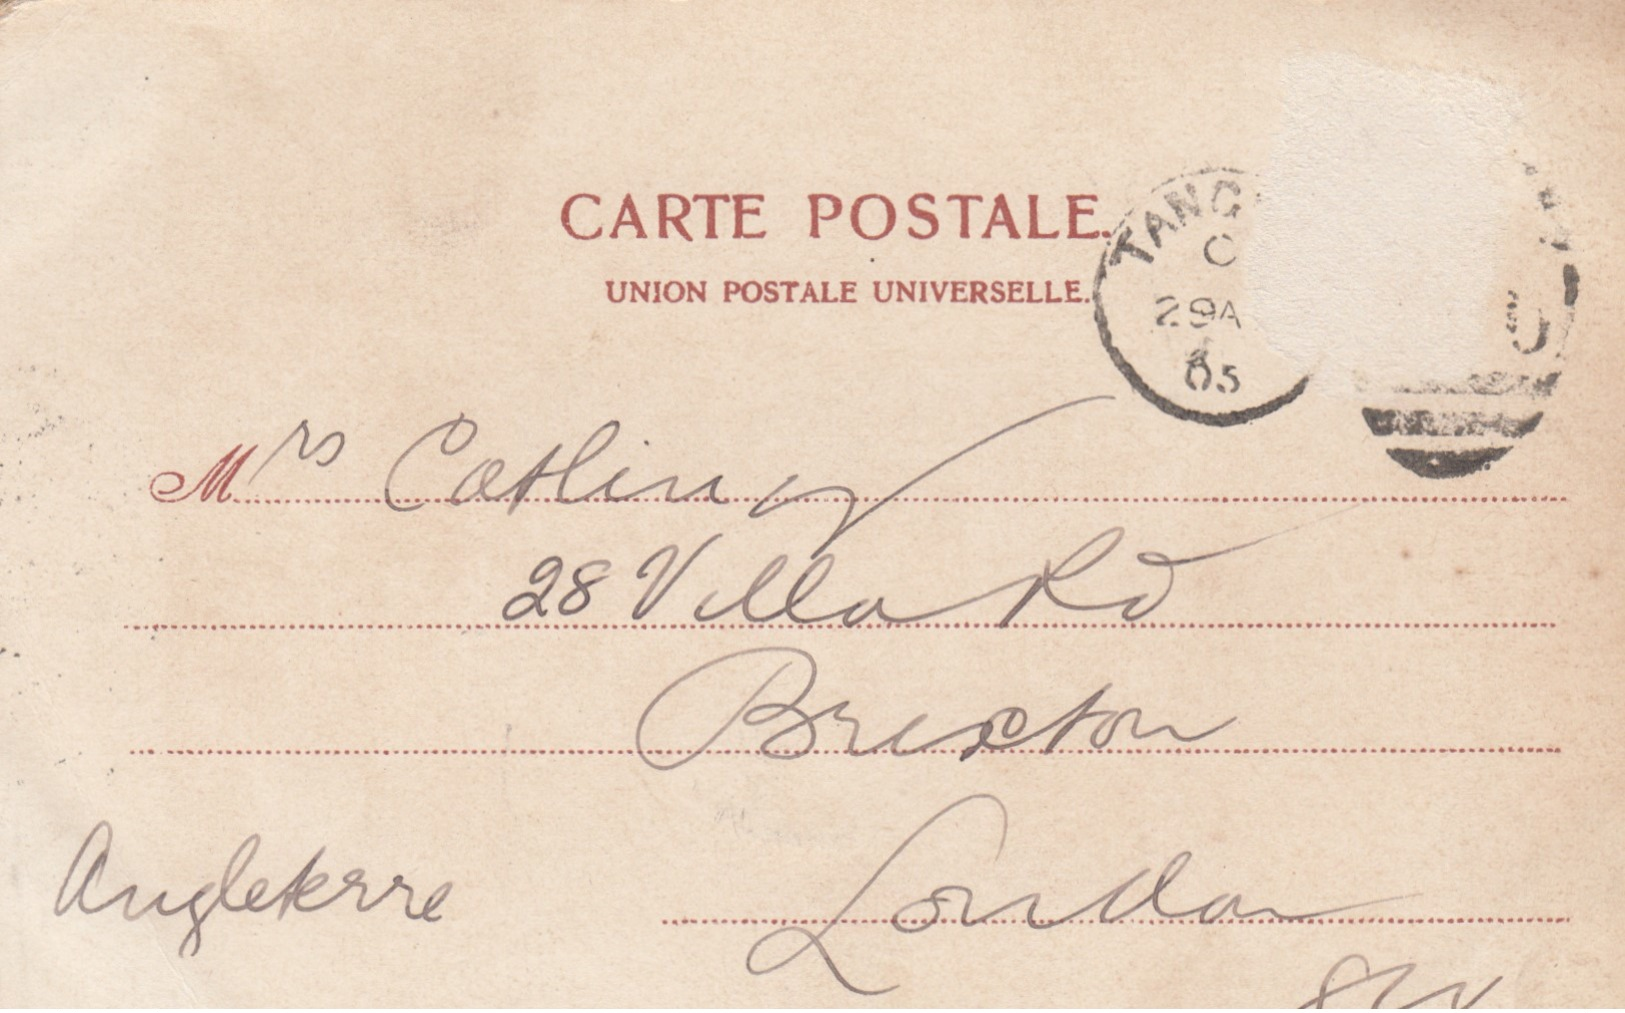 CARTE POSTALE.
UNION POSTALE UNIVERSELLE.
TANG
C
29 A
05
Mrs Catling
28 Villa Rd
Brixton
Angleterre
London
SW